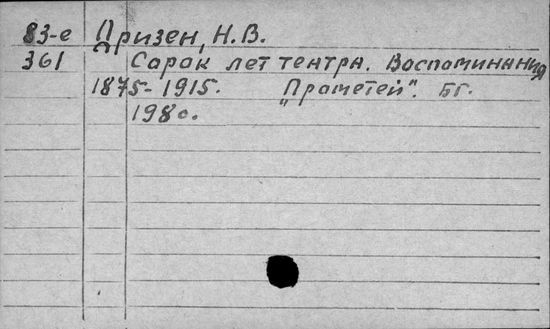 83-е Дризен, Н.В.
361 Сорок лет театра. Воспоминания
1875-1915. "Прометей". Бг.
198с.